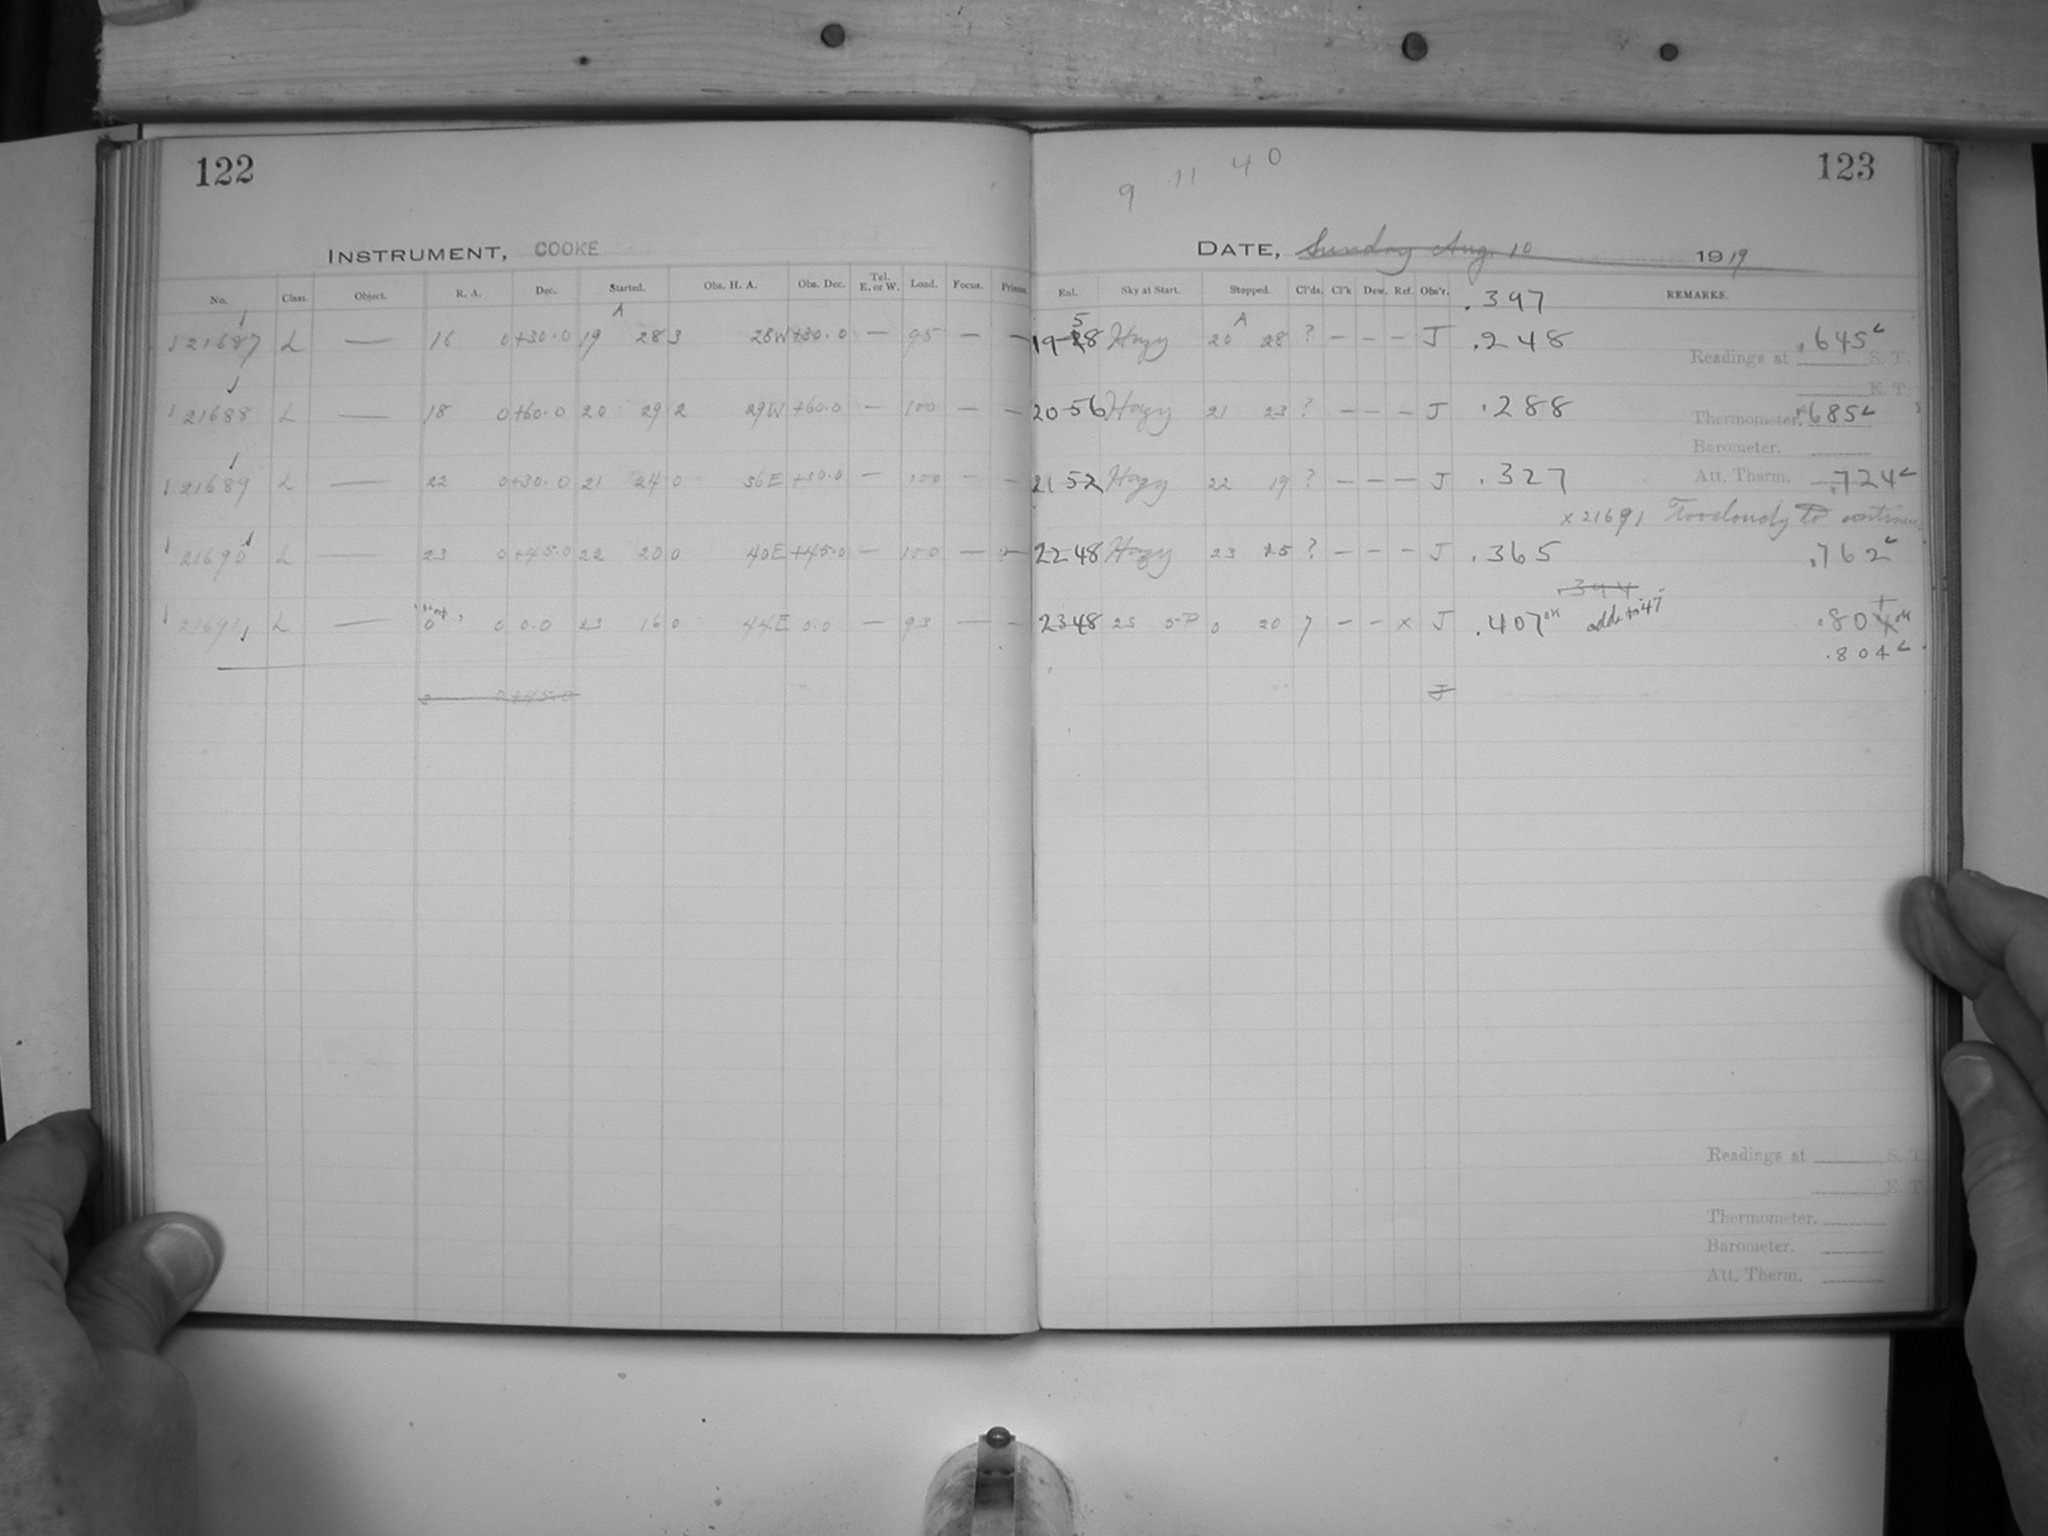 122
INSTRUMENT, COOKE
No. Class. Object. R. A. Dec. Started. Obs. H. A. Obs. Dec. Tel. E. or W. Load. Focus. Prisms.
A
21687 L — 16 0 +30.0 19 28 3 28W +30.0 — 95 — —
21688 L — 18 0 +60.0 20 29 2 29W +60.0 — 100 — —
21689 L — 22 0 +30.0 21 24 0 36E +30.0 — 100 — —
21690 L — 23 0 +45.0 22 20 0 40E +45.0 — 100 — —
21691 L — 0 0 0.0 23 16 0 44E 0.0 — 93 — —
0 0 +45.0
9 11 40
123
DATE, Sunday Aug. 10 1919
Exl. Sky at Start. Stopped. Cl'ds. Cl'k Dew. Ref. Obs'r. .397 REMARKS.
5 A
19-28 Hazy 20 28 ? — — — J .248 .645
Readings at S. T.
E. T.
20-56 Hazy 21 23 ? — — — J .288 .685
Thermometer.
Barometer.
21 52 Hazy 22 19 ? — — — J .327 Att. Therm. .724
x 21691 Too cloudy to continue
22 48 Hazy 23 15 ? — — — J .365 .762
.394
23 48 0 20 7 — — x J .407 add to 47 .804
.804
J
Readings at S. T.
E. T.
Thermometer.
Barometer.
Att. Therm.